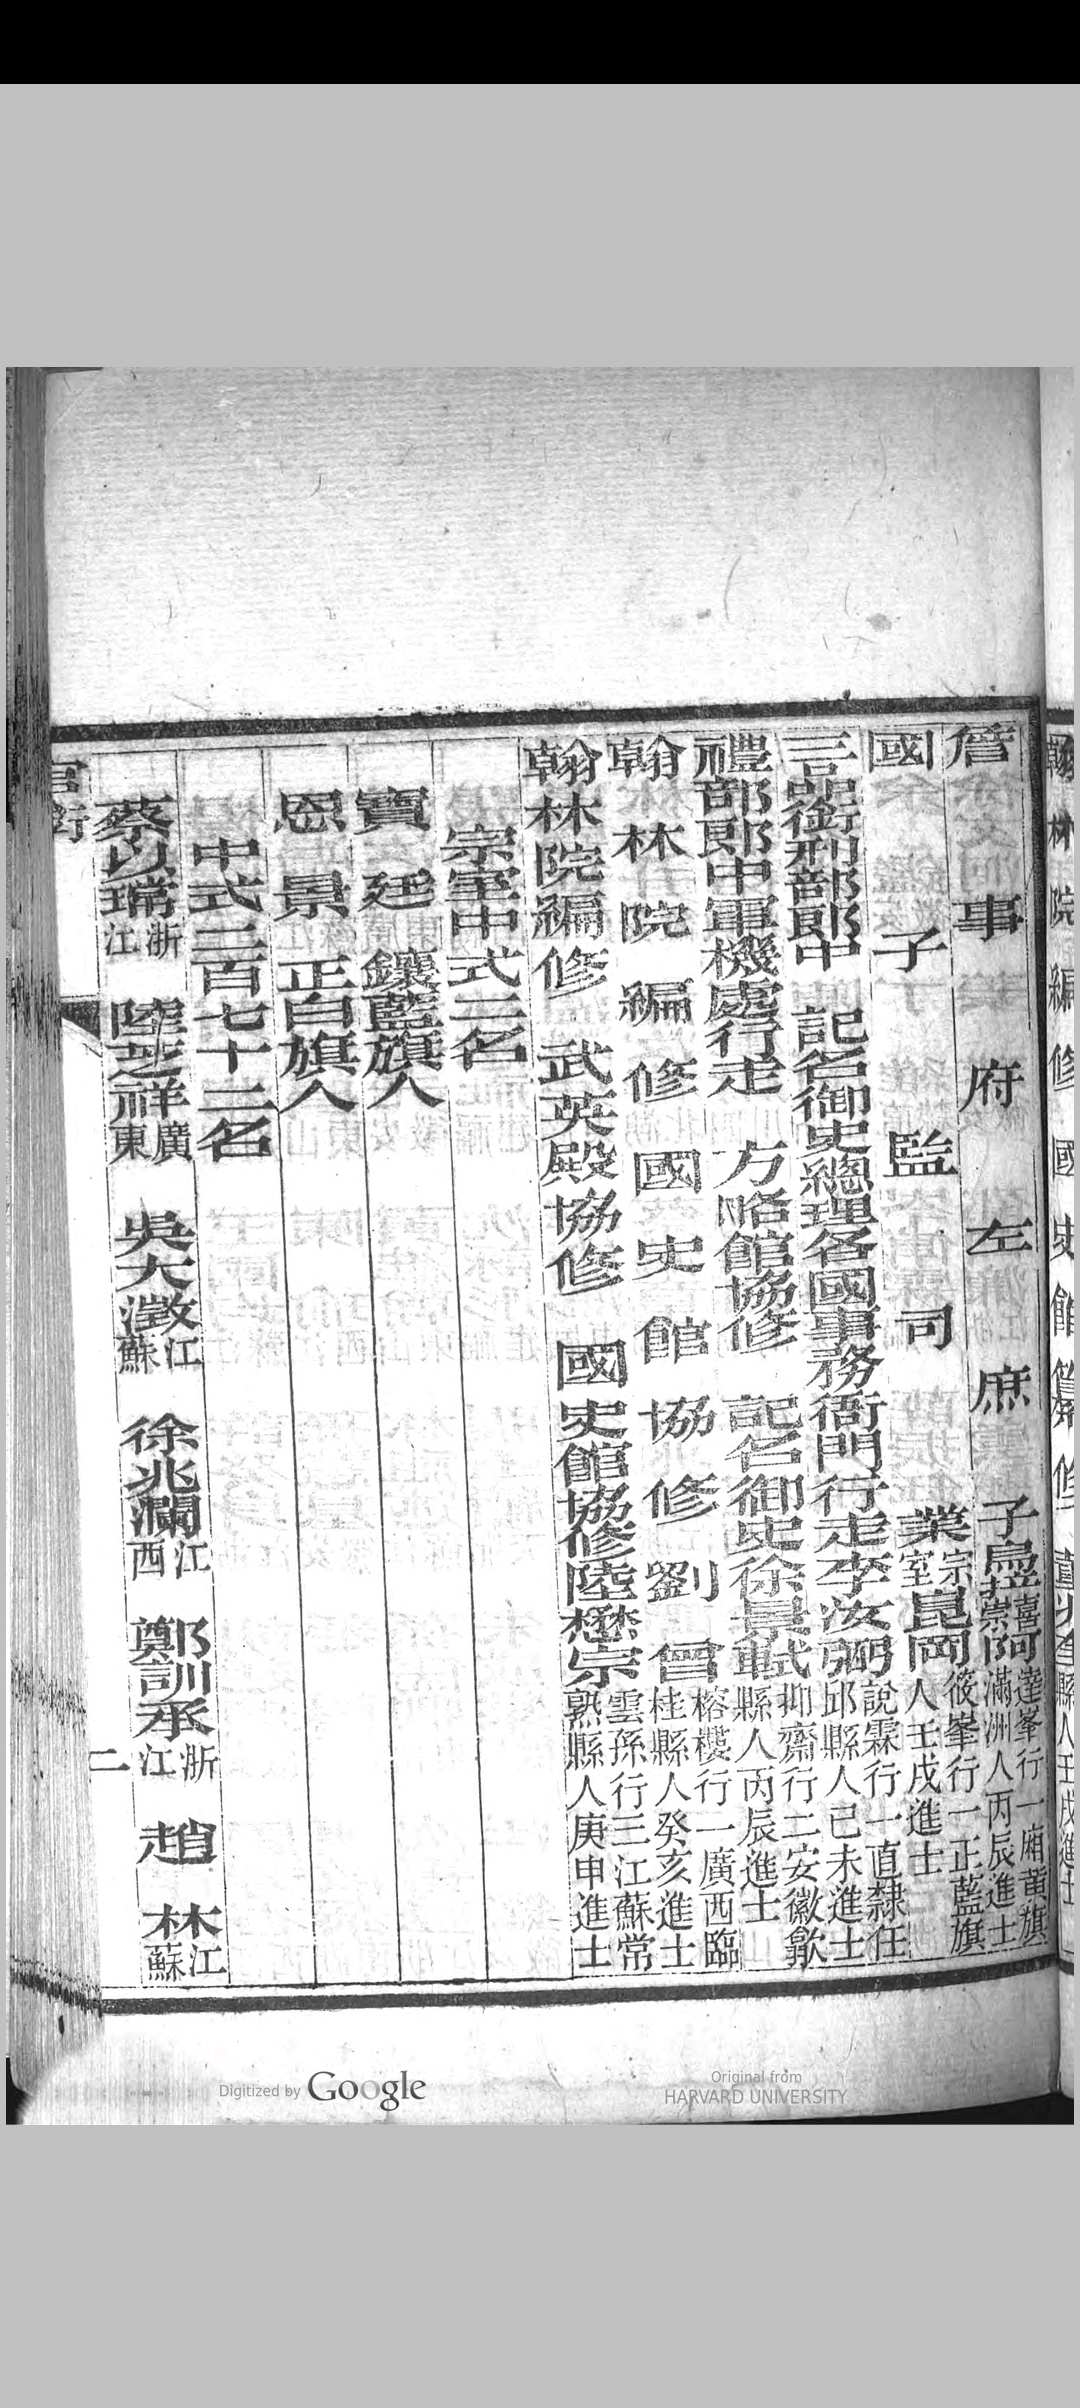 林院編修國史館纂修
詹事府左庶子烏拉喜崇阿達峯行一廂黃旗滿洲人丙辰進士
國子監司業宗室崑岡筱峯行一正藍旗人壬戌進士
三品銜刑部郎中　記名御史總理各國事務衙門行走李汝弼說霖行一直隸任邱縣人己未進士
禮部郎中軍機處行走　方略館協修　記名御史徐景軾抑齋行二安徽歙縣人丙辰進士
翰林院編修國史館協修劉曾榕樓行一廣西臨桂縣人癸亥進士
翰林院編修　武英殿協修　國史館協修陸懋宗雲孫行三江蘇常熟縣人庚申進士
宗室中式二名
寶廷　鑲藍旗人
恩景　正白旗人
中式二百七十二名
蔡以瑺浙江　陸芝祥廣東　吳大澂江蘇　徐兆瀾江西　鄭訓承浙江　趙林江蘇
官銜　二
Digitized by Google
Original from
HARVARD UNIVERSITY